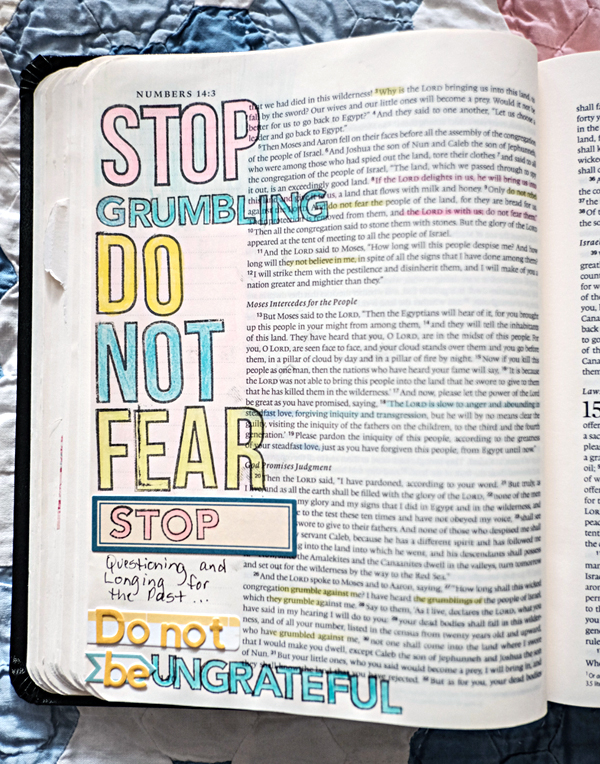 NUMBERS 14:3
STOP
GRUMBLING
DO
NOT
FEAR
STOP
Questioning and
Longing for
the Past...
Do not
be UNGRATEFUL
that we had died in this wilderness! ³Why is the LORD bringing us into this land, to
fall by the sword? Our wives and our little ones will become a prey. Would it not be
better for us to go back to Egypt?" ⁴And they said to one another, "Let us choose a
leader and go back to Egypt."
⁵Then Moses and Aaron fell on their faces before all the assembly of the congregation
of the people of Israel. ⁶And Joshua the son of Nun and Caleb the son of Jephunneh,
who were among those who had spied out the land, tore their clothes ⁷and said to all
the congregation of the people of Israel, "The land, which we passed through to spy
it out, is an exceedingly good land. ⁸If the LORD delights in us, he will bring us into
us, a land that flows with milk and honey. ⁹Only do not rebel
do not fear the people of the land, for they are bread for us.
protection is removed from them, and the LORD is with us; do not fear them."
¹⁰Then all the congregation said to stone them with stones. But the glory of the LORD
appeared at the tent of meeting to all the people of Israel.
¹¹And the LORD said to Moses, "How long will this people despise me? And how
long will they not believe in me, in spite of all the signs that I have done among them?
¹²I will strike them with the pestilence and disinherit them, and I will make of you a
nation greater and mightier than they."
Moses Intercedes for the People
¹³But Moses said to the LORD, "Then the Egyptians will hear of it, for you brought
up this people in your might from among them, ¹⁴and they will tell the inhabitants
of this land. They have heard that you, O LORD, are in the midst of this people. For
you, O LORD, are seen face to face, and your cloud stands over them and you go before
them, in a pillar of cloud by day and in a pillar of fire by night. ¹⁵Now if you kill this
people as one man, then the nations who have heard your fame will say, ¹⁶'It is because
the LORD was not able to bring this people into the land that he swore to give to them
that he has killed them in the wilderness.' ¹⁷And now, please let the power of the Lord
be great as you have promised, saying, ¹⁸'The LORD is slow to anger and abounding in
steadfast love, forgiving iniquity and transgression, but he will by no means clear the
guilty, visiting the iniquity of the fathers on the children, to the third and the fourth
generation.' ¹⁹Please pardon the iniquity of this people, according to the greatness
of your steadfast love, just as you have forgiven this people, from Egypt until now."
God Promises Judgment
²⁰Then the LORD said, "I have pardoned, according to your word. ²¹But truly, as
I live, and as all the earth shall be filled with the glory of the LORD, ²²none of the men
my glory and my signs that I did in Egypt and in the wilderness, and
to the test these ten times and have not obeyed my voice, ²³shall see
swore to give to their fathers. And none of those who despised me shall
servant Caleb, because he has a different spirit and has followed me
into the land into which he went, and his descendants shall possess
the Amalekites and the Canaanites dwell in the valleys, turn tomorrow
and set out for the wilderness by the way to the Red Sea."
²⁶And the LORD spoke to Moses and to Aaron, saying, ²⁷"How long shall this wicked
congregation grumble against me? I have heard the grumblings of the people of Israel,
which they grumble against me. ²⁸Say to them, 'As I live, declares the LORD, what you
have said in my hearing I will do to you: ²⁹your dead bodies shall fall in this wilderness,
and of all your number, listed in the census from twenty years old and upward,
who have grumbled against me, ³⁰not one shall come into the land where I swore
that I would make you dwell, except Caleb the son of Jephunneh and Joshua the son
of Nun. ³¹But your little ones, who you said would become a prey, I will bring in, and
they shall know the land that you have rejected. ³²But as for you, your dead bodies